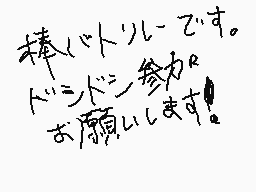 棒バトリレーです。
ドンドン参加
お願いします!